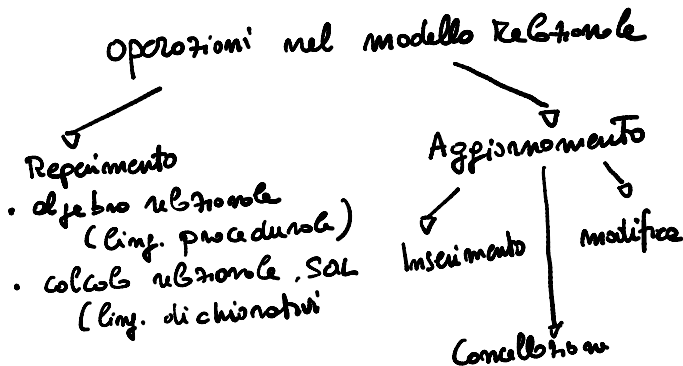 operazioni nel modello relazionale
Reperimento
• algebra relazionale
(ling. procedurale)
• calcolo relazionale, SQL
(ling. dichiarativi
Aggiornamento
Inserimento
modifica
Cancellazione